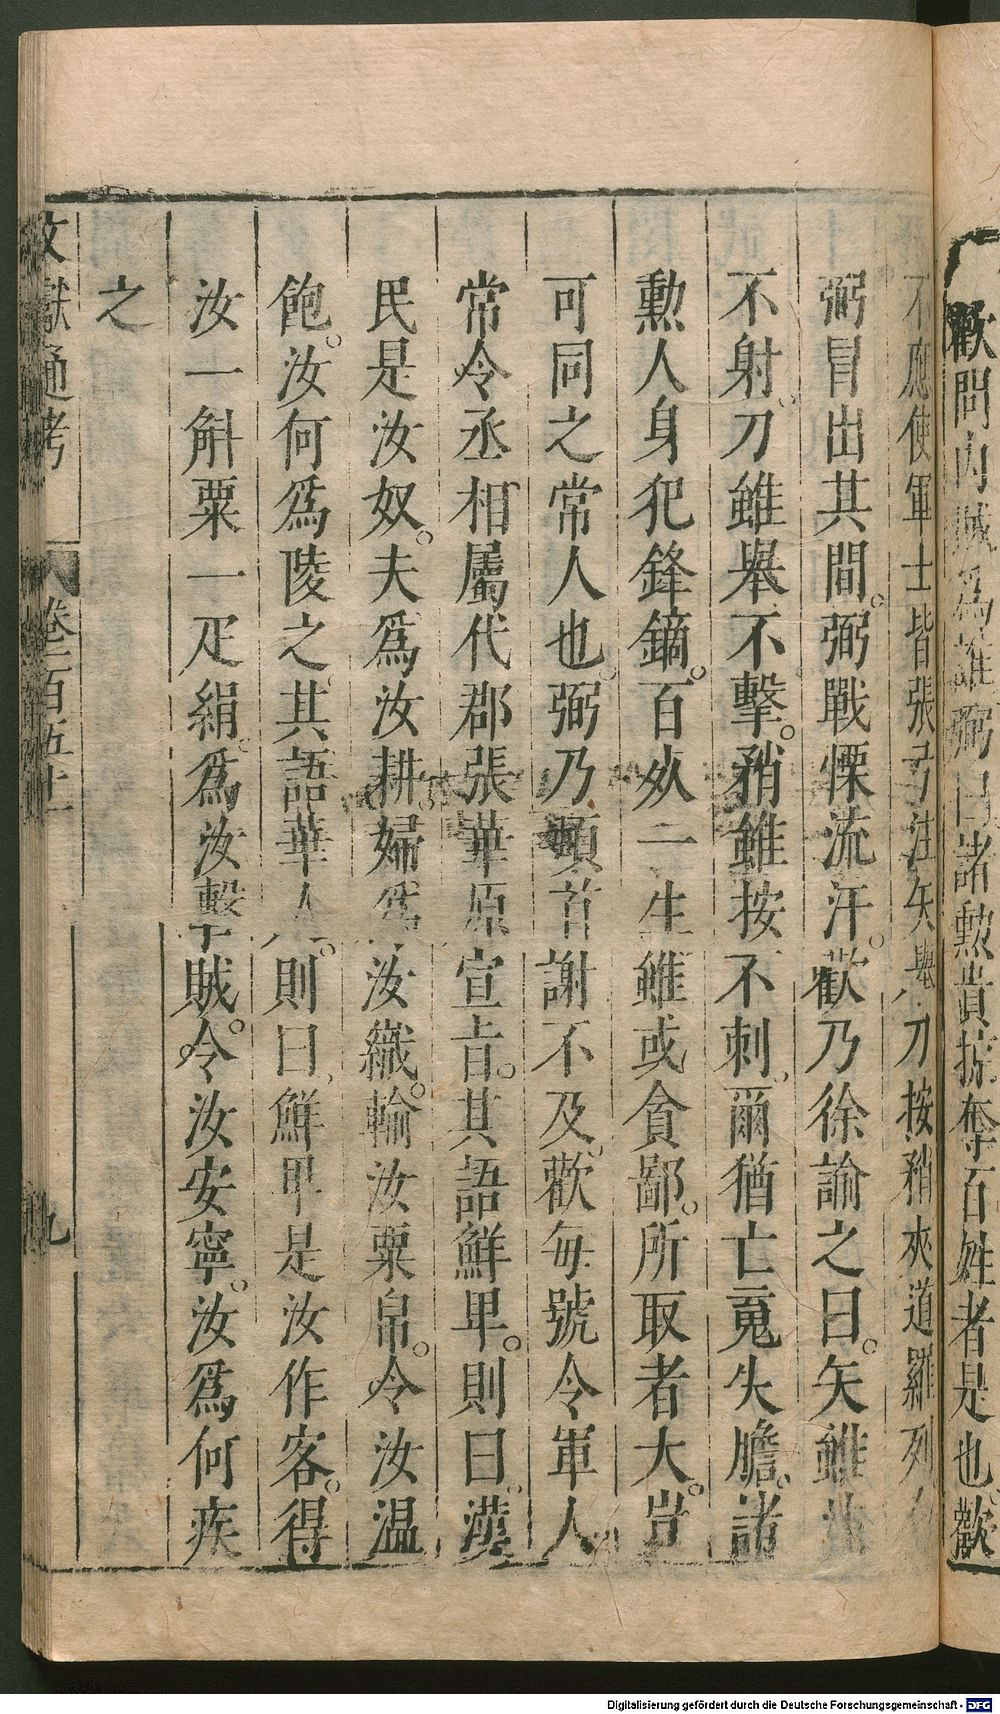 歡問內賊爲誰弼曰諸勲貴掠奪百姓者是也。歡
不應使軍士皆張弓注矢舉刀按矟夾道羅列
弼冒出其間。弼戰慄流汗。歡乃徐諭之曰。矢雖注
不射。刀雖舉不擊。矟雖按不刺。爾猶亡䰟失膽。諸
勲人身犯鋒鏑。百死一生雖或貪鄙。所取者大。豈
可同之常人也。弼乃頓首謝不及。歡每號令軍人
常令丞相屬代郡張華原宣㫖。其語鮮卑。則曰。漢
民是汝奴。夫爲汝耕。婦爲汝織。輸汝粟帛。令汝温
飽。汝何爲陵之。其語華人。則曰。鮮卑是汝作客。得
汝一斛粟一疋絹。爲汝擊賊。令汝安寧。汝爲何疾
之
文獻通考 卷一百五十一 九
Digitalisierung gefördert durch die Deutsche Forschungsgemeinschaft - DFG